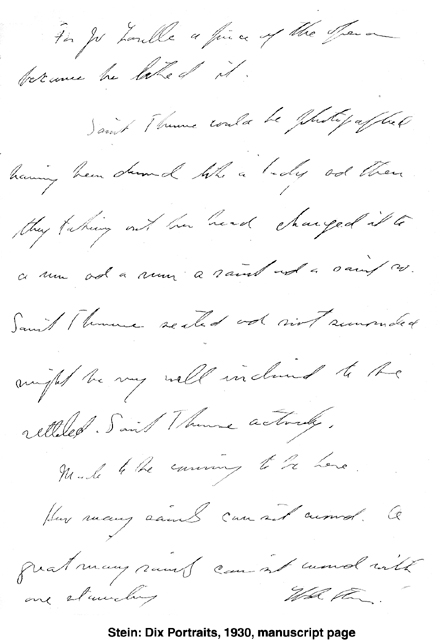 For Jo Laselle a piece of the opera
because he liked it.
Saint Therese could be photographed
having been dressed like a lady and then
they taking out her head changed it to
a nun and a nun a saint and a saint so.
Saint Therese seated and not surrounded
might be very well inclined to be
settled. Saint Therese actively.
Made to be coming to be here.
How many saints can sit around. A
great many saints can sit around with
one standing
Stein: Dix Portraits, 1930, manuscript page